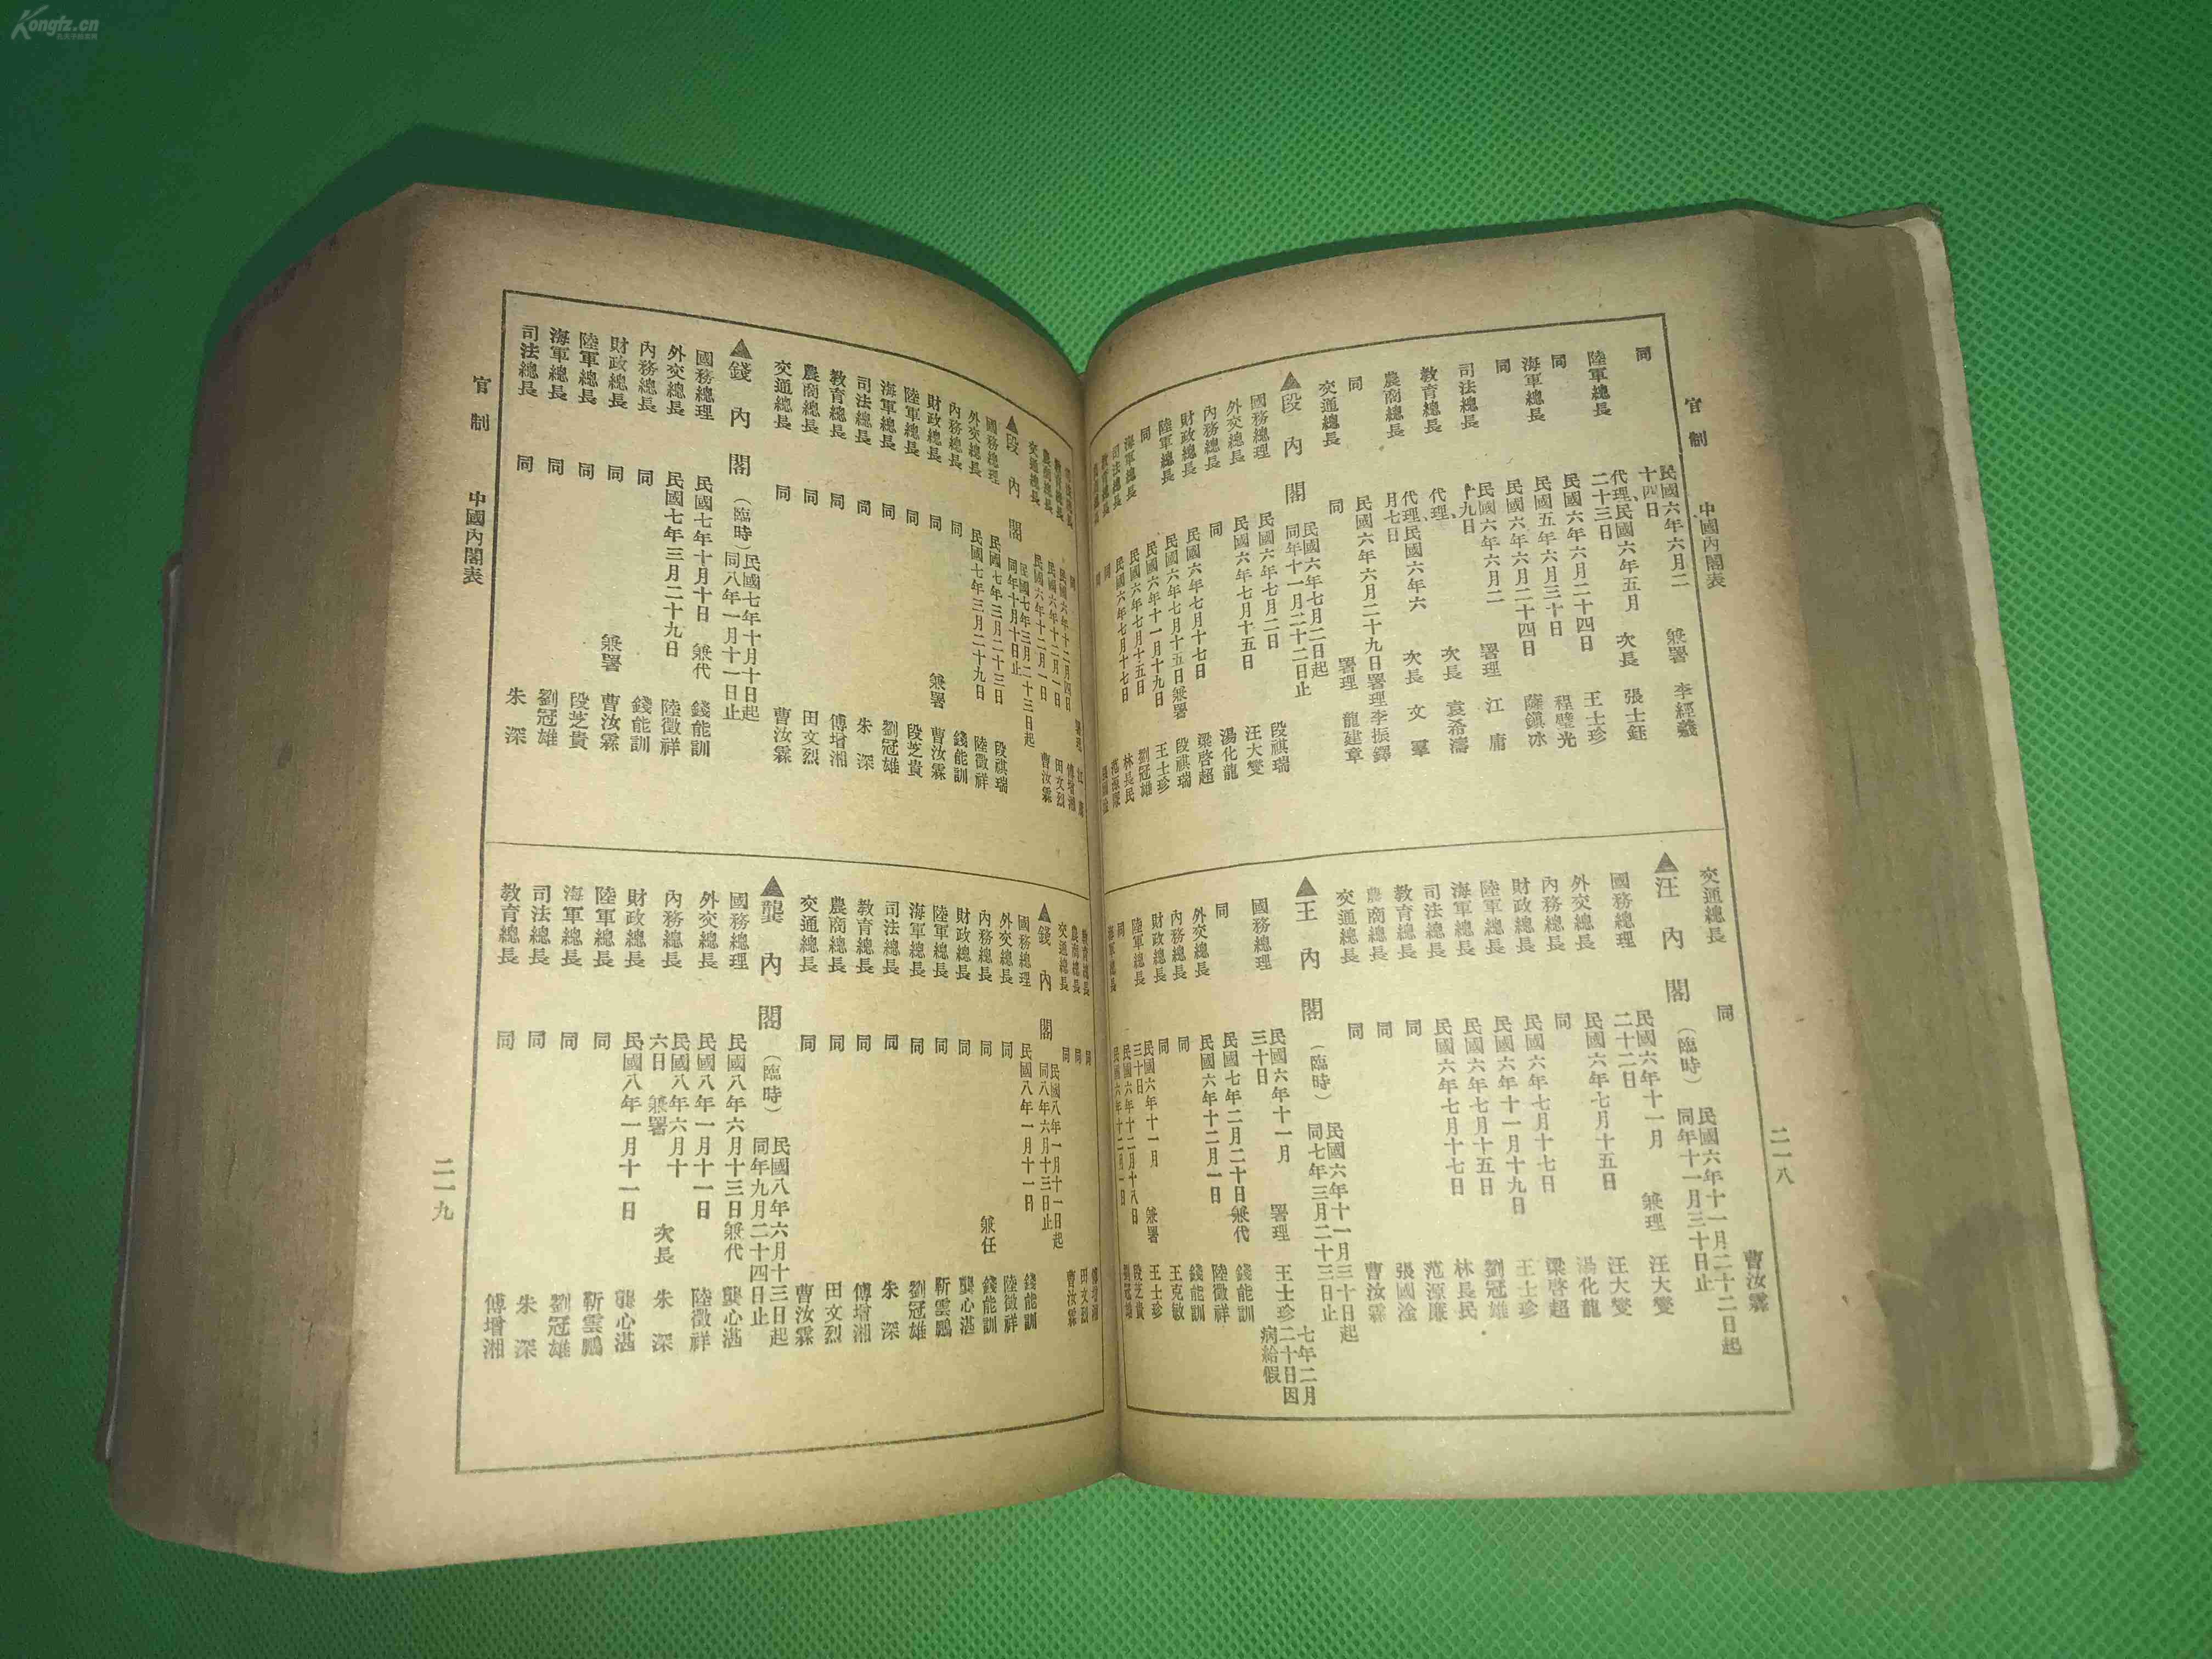 Kongfz.cn
官制 中國內閣表
二一八
同 民國六年六月二十四日 兼署 李經羲
陸軍總長 代理、民國六年五月二十三日 次長 張士鈺
同 民國六年六月二十四日 王士珍
海軍總長 民國五年六月三十日 程璧光
同 民國六年六月二十四日 薩鎭冰
司法總長 民國六年六月二十九日 署理 江庸
教育總長 代理、 次長 袁希濤
農商總長 代理、民國六年六月七日 次長 文羣
同 民國六年六月二十九日署理 李振鐸
交通總長 同 署理 龍建章
▲段內閣 民國六年七月二日起 同年十一月二十二日止
國務總理 民國六年七月二日 段祺瑞
外交總長 民國六年七月十五日 汪大燮
內務總長 同 湯化龍
財政總長 民國六年七月十七日 梁啓超
陸軍總長 民國六年七月十五日兼署 段祺瑞
同 民國六年十一月十九日 王士珍
海軍總長 民國六年七月十五日 劉冠雄
司法總長 民國六年七月十七日 林長民
交通總長 同 曹汝霖
▲汪內閣(臨時) 民國六年十一月二十二日起 同年十一月三十日止
國務總理 民國六年十一月二十二日 兼理 汪大燮
外交總長 民國六年七月十五日 汪大燮
內務總長 同 湯化龍
財政總長 民國六年七月十七日 梁啓超
陸軍總長 民國六年十一月十九日 王士珍
海軍總長 民國六年七月十五日 劉冠雄
司法總長 民國六年七月十七日 林長民
教育總長 同 范源廉
農商總長 同 張國淦
交通總長 同 曹汝霖
▲王內閣(臨時) 民國六年十一月三十日起 同七年三月二十三日止
國務總理 民國六年十一月三十日 署理 王士珍 七年二月二十日因病給假
同 民國七年二月二十日兼代 錢能訓
外交總長 民國六年十二月一日 陸徵祥
內務總長 同 錢能訓
財政總長 同 王克敏
陸軍總長 民國六年十一月三十日 兼署 王士珍
同 民國六年十二月十八日 段芝貴
海軍總長 民國六年十二月一日 劉冠雄
官制 中國內閣表
二一九
教育總長 民國六年十二月四日 傅增湘
農商總長 民國六年十二月一日 田文烈
交通總長 民國六年十二月一日 曹汝霖
▲段內閣 民國七年三月二十三日起 同年十月十日止
國務總理 民國七年三月二十三日 段祺瑞
外交總長 民國七年三月二十九日 陸徵祥
內務總長 同 錢能訓
財政總長 同 兼署 曹汝霖
陸軍總長 同 段芝貴
海軍總長 同 劉冠雄
司法總長 同 朱深
教育總長 同 傅增湘
農商總長 同 田文烈
交通總長 同 曹汝霖
▲錢內閣(臨時) 民國七年十月十日起 同八年一月十一日止
國務總理 民國七年十月十日 兼代 錢能訓
外交總長 民國七年三月二十九日 陸徵祥
內務總長 同 錢能訓
財政總長 同 兼署 曹汝霖
陸軍總長 同 段芝貴
海軍總長 同 劉冠雄
司法總長 同 朱深
教育總長 同 傅增湘
農商總長 同 田文烈
交通總長 同 曹汝霖
▲錢內閣 民國八年一月十一日起 同八年六月十三日止
國務總理 民國八年一月十一日 錢能訓
外交總長 同 陸徵祥
內務總長 同 兼任 錢能訓
財政總長 同 龔心湛
陸軍總長 同 靳雲鵬
海軍總長 同 劉冠雄
司法總長 同 朱深
教育總長 同 傅增湘
農商總長 同 田文烈
交通總長 同 曹汝霖
▲龔內閣(臨時) 民國八年六月十三日起 同年九月二十四日止
國務總理 民國八年六月十三日兼代 龔心湛
外交總長 民國八年一月十一日 陸徵祥
內務總長 民國八年六月十六日 兼署 次長 朱深
財政總長 民國八年一月十一日 龔心湛
陸軍總長 同 靳雲鵬
海軍總長 同 劉冠雄
司法總長 同 朱深
教育總長 同 傅增湘